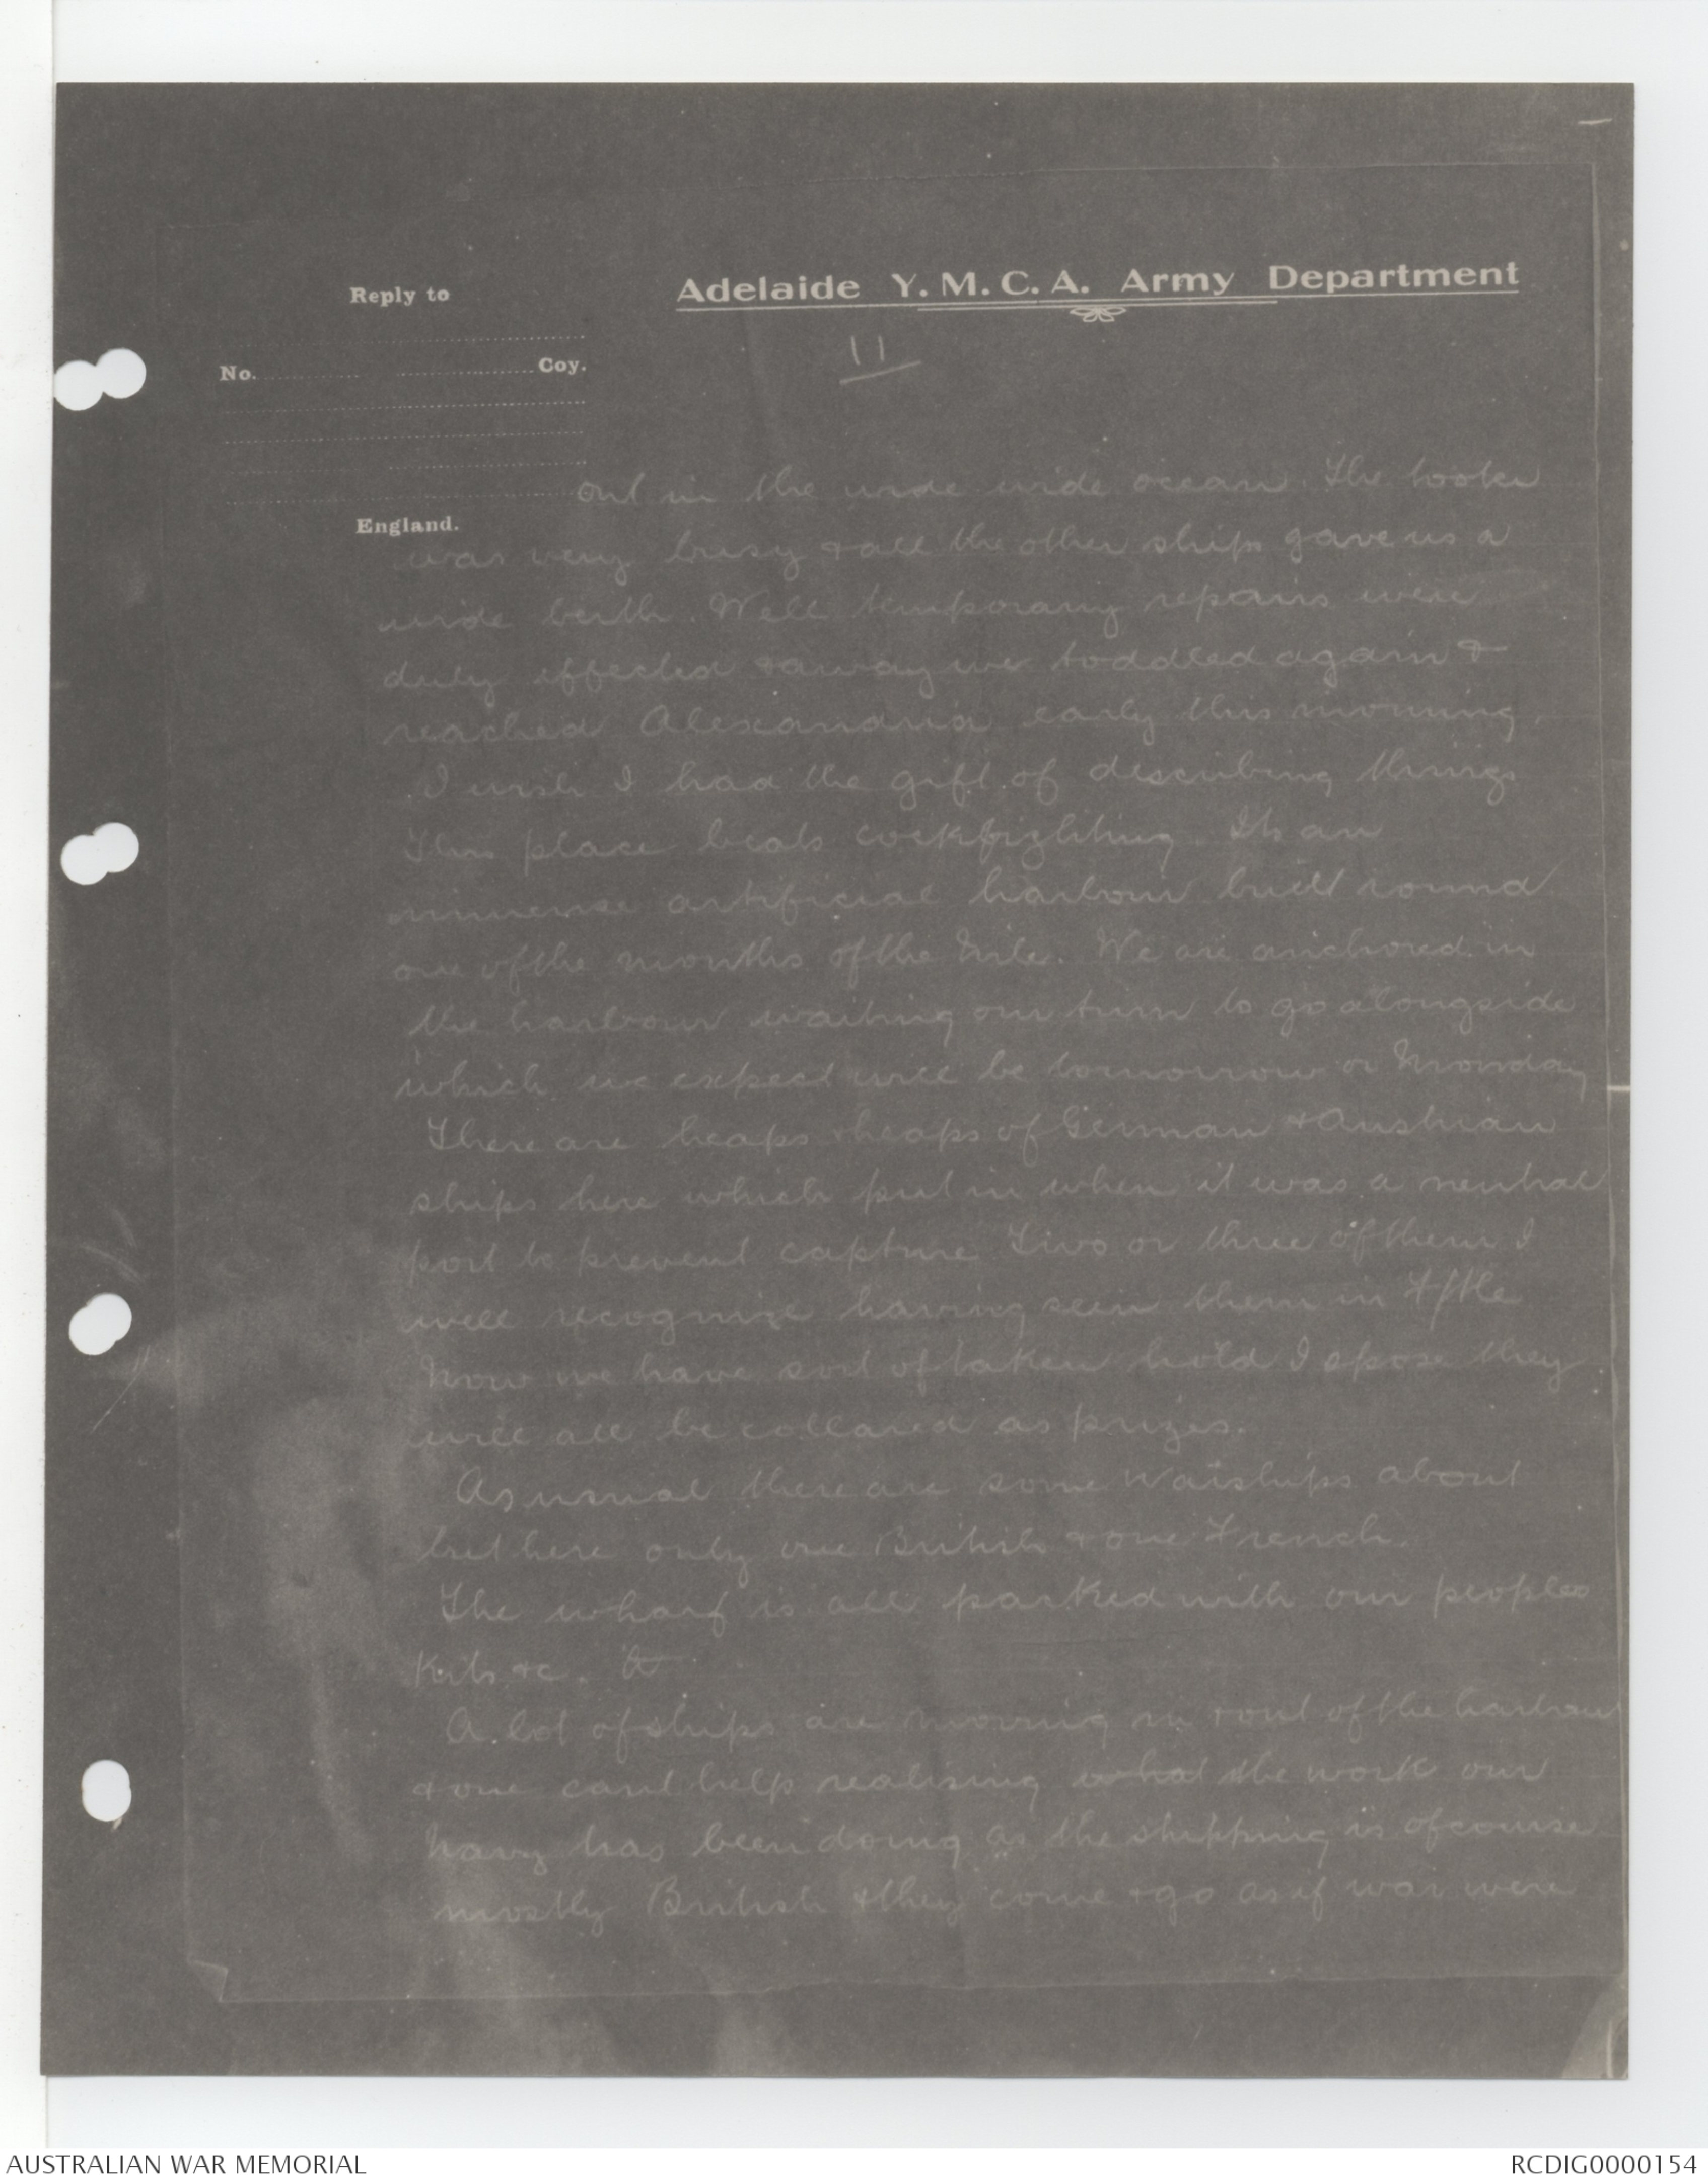 Adelaide Y.M.C.A. Army Department
Reply to
No. Coy.
England.
11
out in the wide wide ocean. The hooter
was very busy & all the other ships gave us a
wide berth. Well temporary repairs were
duly effected & away we toddled again &
reached Alexandria early this morning.
I wish I had the gift of describing things
This place beats cockfighting. Its an
immense artificial harbour built round
one of the mouths of the Nile. We are anchored in
the harbour waiting our turn to go alongside
which we expect will be tomorrow or Monday
There are heaps & heaps of German & Austrian
ships here which put in when it was a neutral
port to prevent capture Two or three of them I
well recognise having seen them in
Now we have sort of taken hold I spose they
will all be collared as prizes.
As usual there are some Warships about
but here only one British & one French.
The wharf is all packed with our peoples
Kits &c.
A lot of ships are moving in & out of the harbour
& one cant help realising what the work our
Navy has been doing as the shipping is of course
mostly British & they come & go as if war were
AUSTRALIAN WAR MEMORIAL
RCDIG0000154